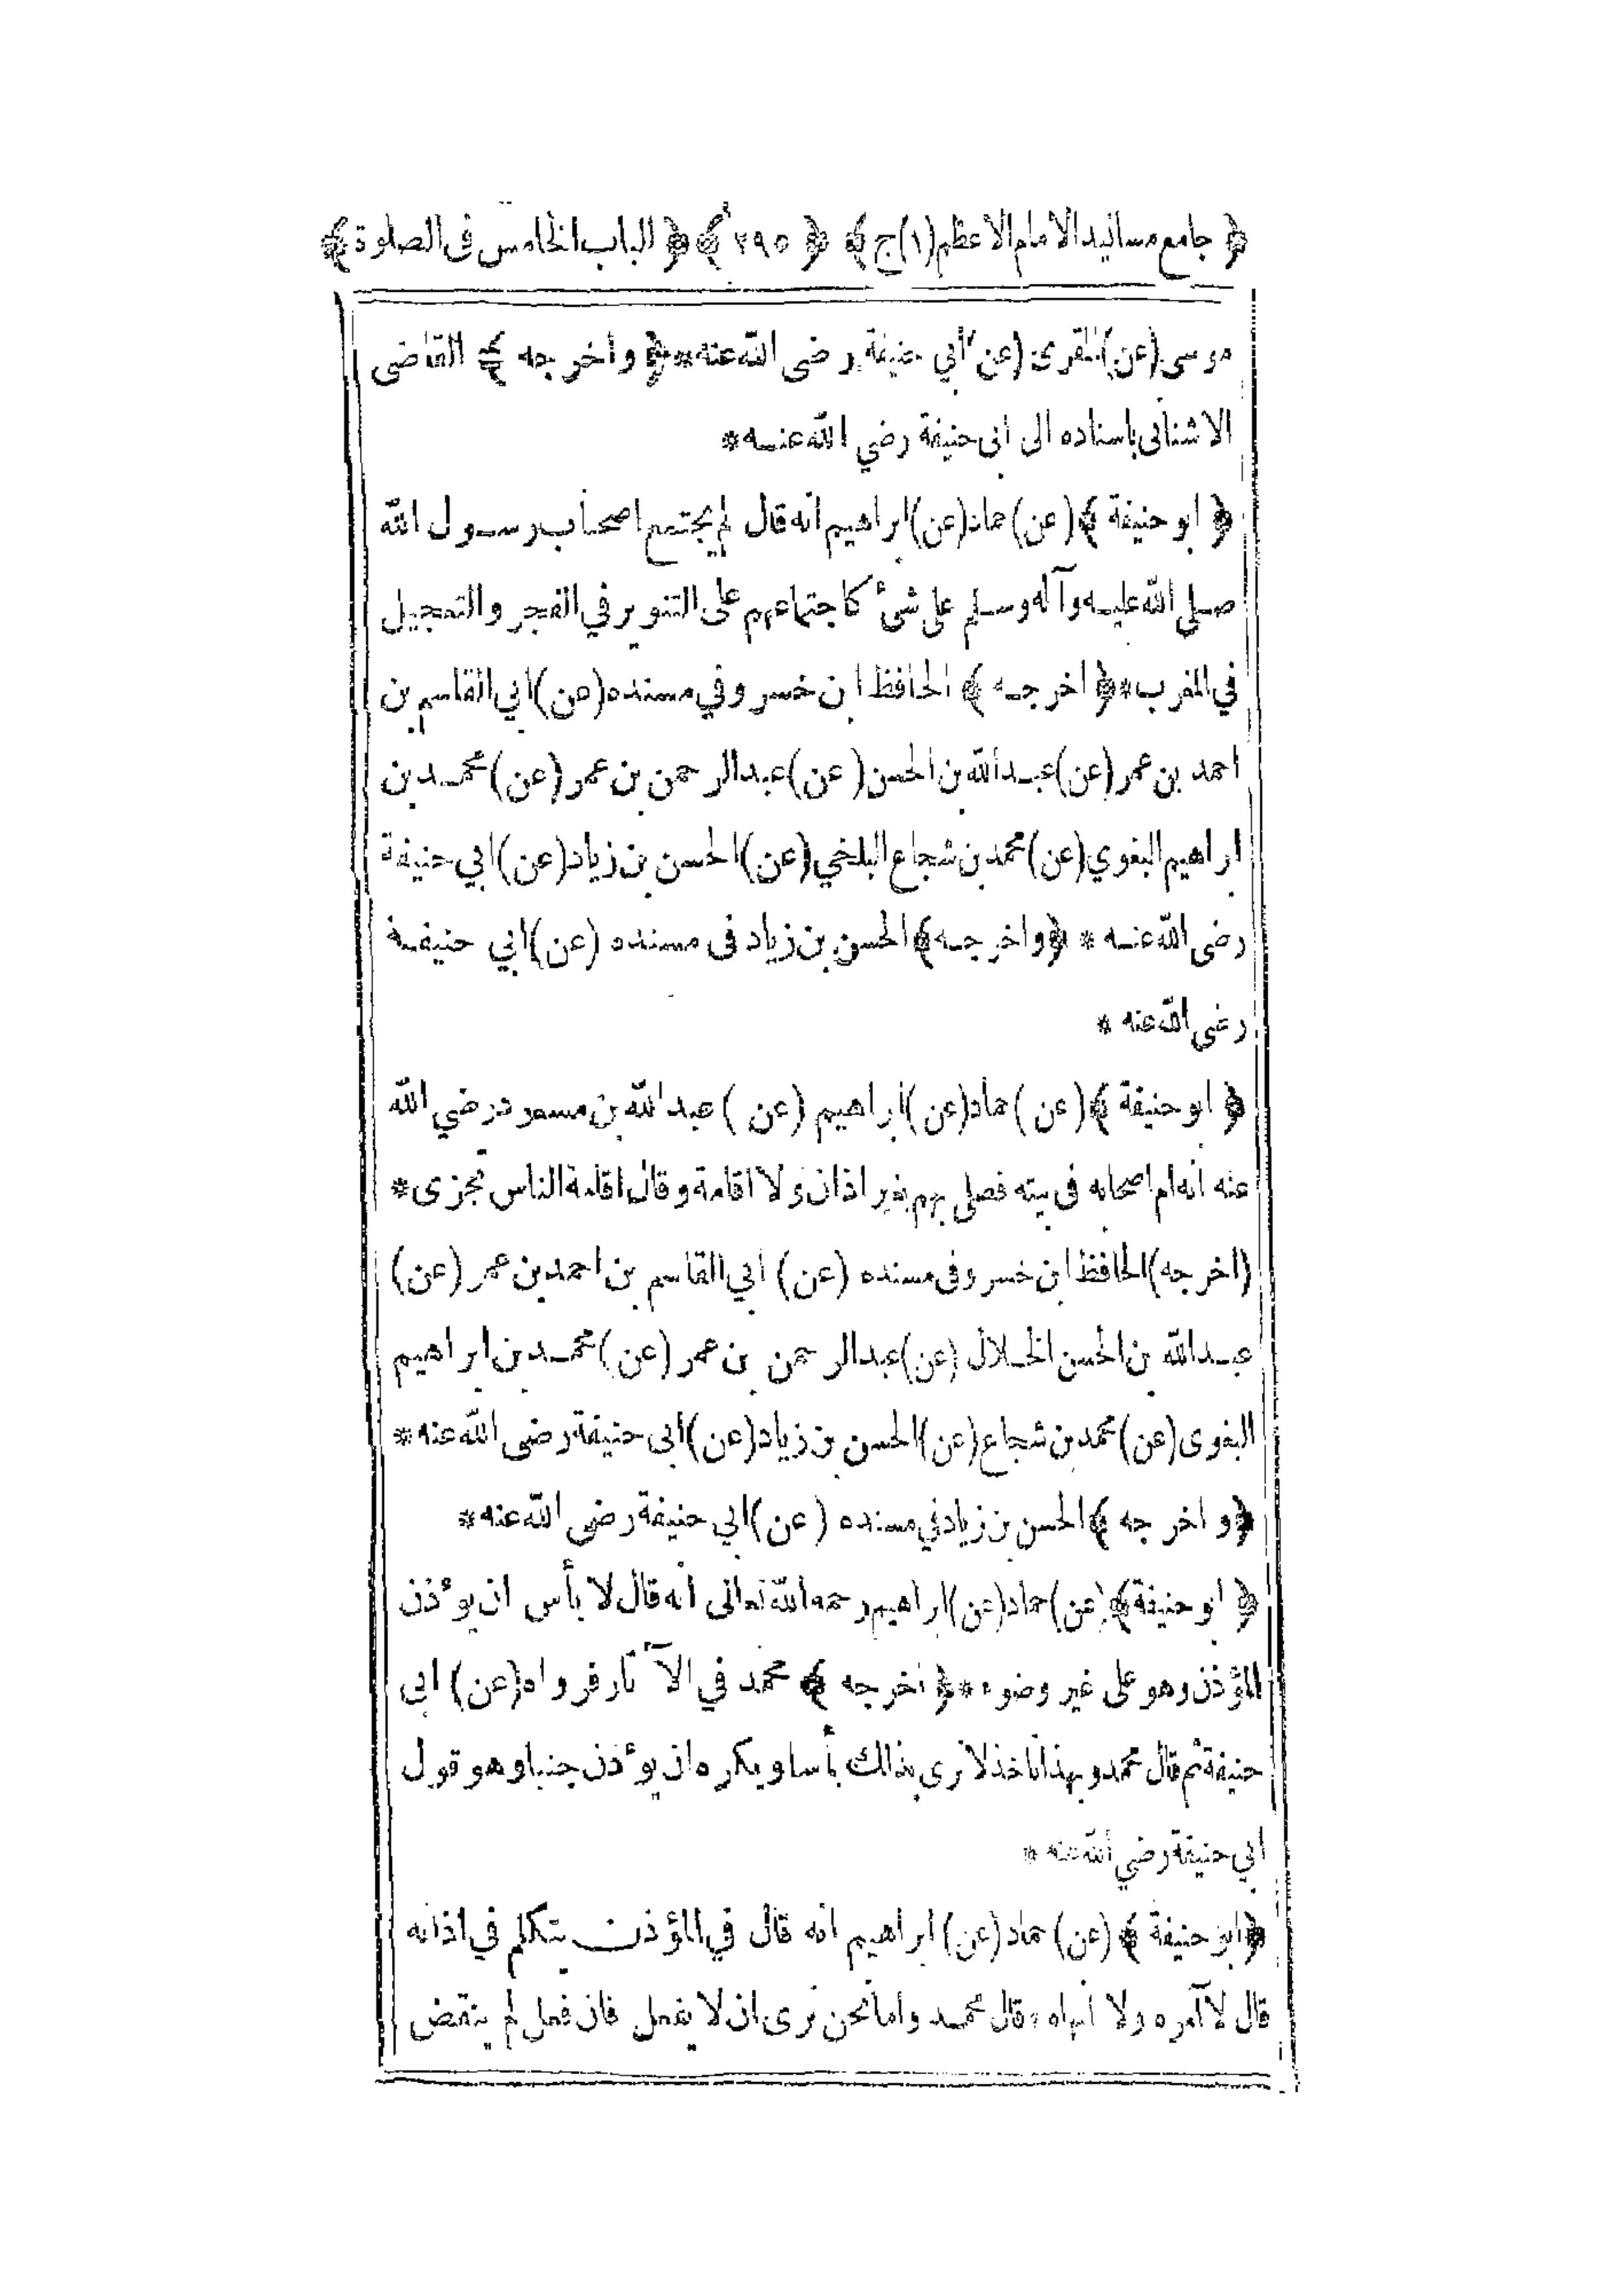 ﴿ جامع مسانيد الامام الاعظم (١) ج ﴾ ﴿ ٢٩٥ ﴾ ﴿ الباب الخامس فى الصلوة ﴾
موسى (عن) المقرى (عن) أبي حنيفة رضى الله عنه * ﴿ واخرجه ﴾ القاضى
الاشنانى باسناده الى ابى حنيفة رضي الله عنه *
﴿ ابو حنيفة ﴾ (عن) حماد (عن) ابراهيم انه قال لم يجتمع اصحاب رسول الله
صلى الله عليه وآله وسلم على شئ كاجتماعهم على التنوير في الفجر والتعجيل
في المغرب * ﴿ اخرجه ﴾ الحافظ ابن خسرو في مسنده (عن) ابي القاسم بن
احمد بن عمر (عن) عبد الله بن الحسن (عن) عبد الرحمن بن عمر (عن) محمد بن
ابراهيم البغوي (عن) محمد بن شجاع البلخي (عن) الحسن بن زياد (عن) ابي حنيفة
رضى الله عنه * ﴿ واخرجه ﴾ الحسن بن زياد فى مسنده (عن) ابي حنيفة
رضى الله عنه *
﴿ ابو حنيفة ﴾ (عن) حماد (عن) ابراهيم (عن) عبد الله بن مسعود رضي الله
عنه انه ام اصحابه فى بيته فصلى بهم بغير اذان ولا اقامة وقال اقامة الناس تجزى *
(اخرجه) الحافظ ابن خسرو فى مسنده (عن) ابي القاسم بن احمد بن عمر (عن)
عبد الله بن الحسن الخلال (عن) عبد الرحمن بن عمر (عن) محمد بن ابراهيم
البغوى (عن) محمد بن شجاع (عن) الحسن بن زياد (عن) ابى حنيفة رضى الله عنه *
﴿ واخرجه ﴾ الحسن بن زياد في مسنده (عن) ابي حنيفة رضى الله عنه *
﴿ ابو حنيفة ﴾ (عن) حماد (عن) ابراهيم رحمه الله تعالى انه قال لا بأس ان يوٴذن
المؤذن وهو على غير وضوء * ﴿ اخرجه ﴾ محمد في الآثار فرواه (عن) ابى
حنيفة ثم قال محمد وبهذا ناخذ لا نرى بذالك بأسا ويكره ان يوٴذن جنبا وهو قول
ابي حنيفة رضي الله عنه *
﴿ ابو حنيفة ﴾ (عن) حماد (عن) ابراهيم انه قال في المؤذن يتكلم في اذانه
قال لا آمره ولا انهاه * قال محمد واما نحن نرى ان لا يفعل فان فعل لم ينقض